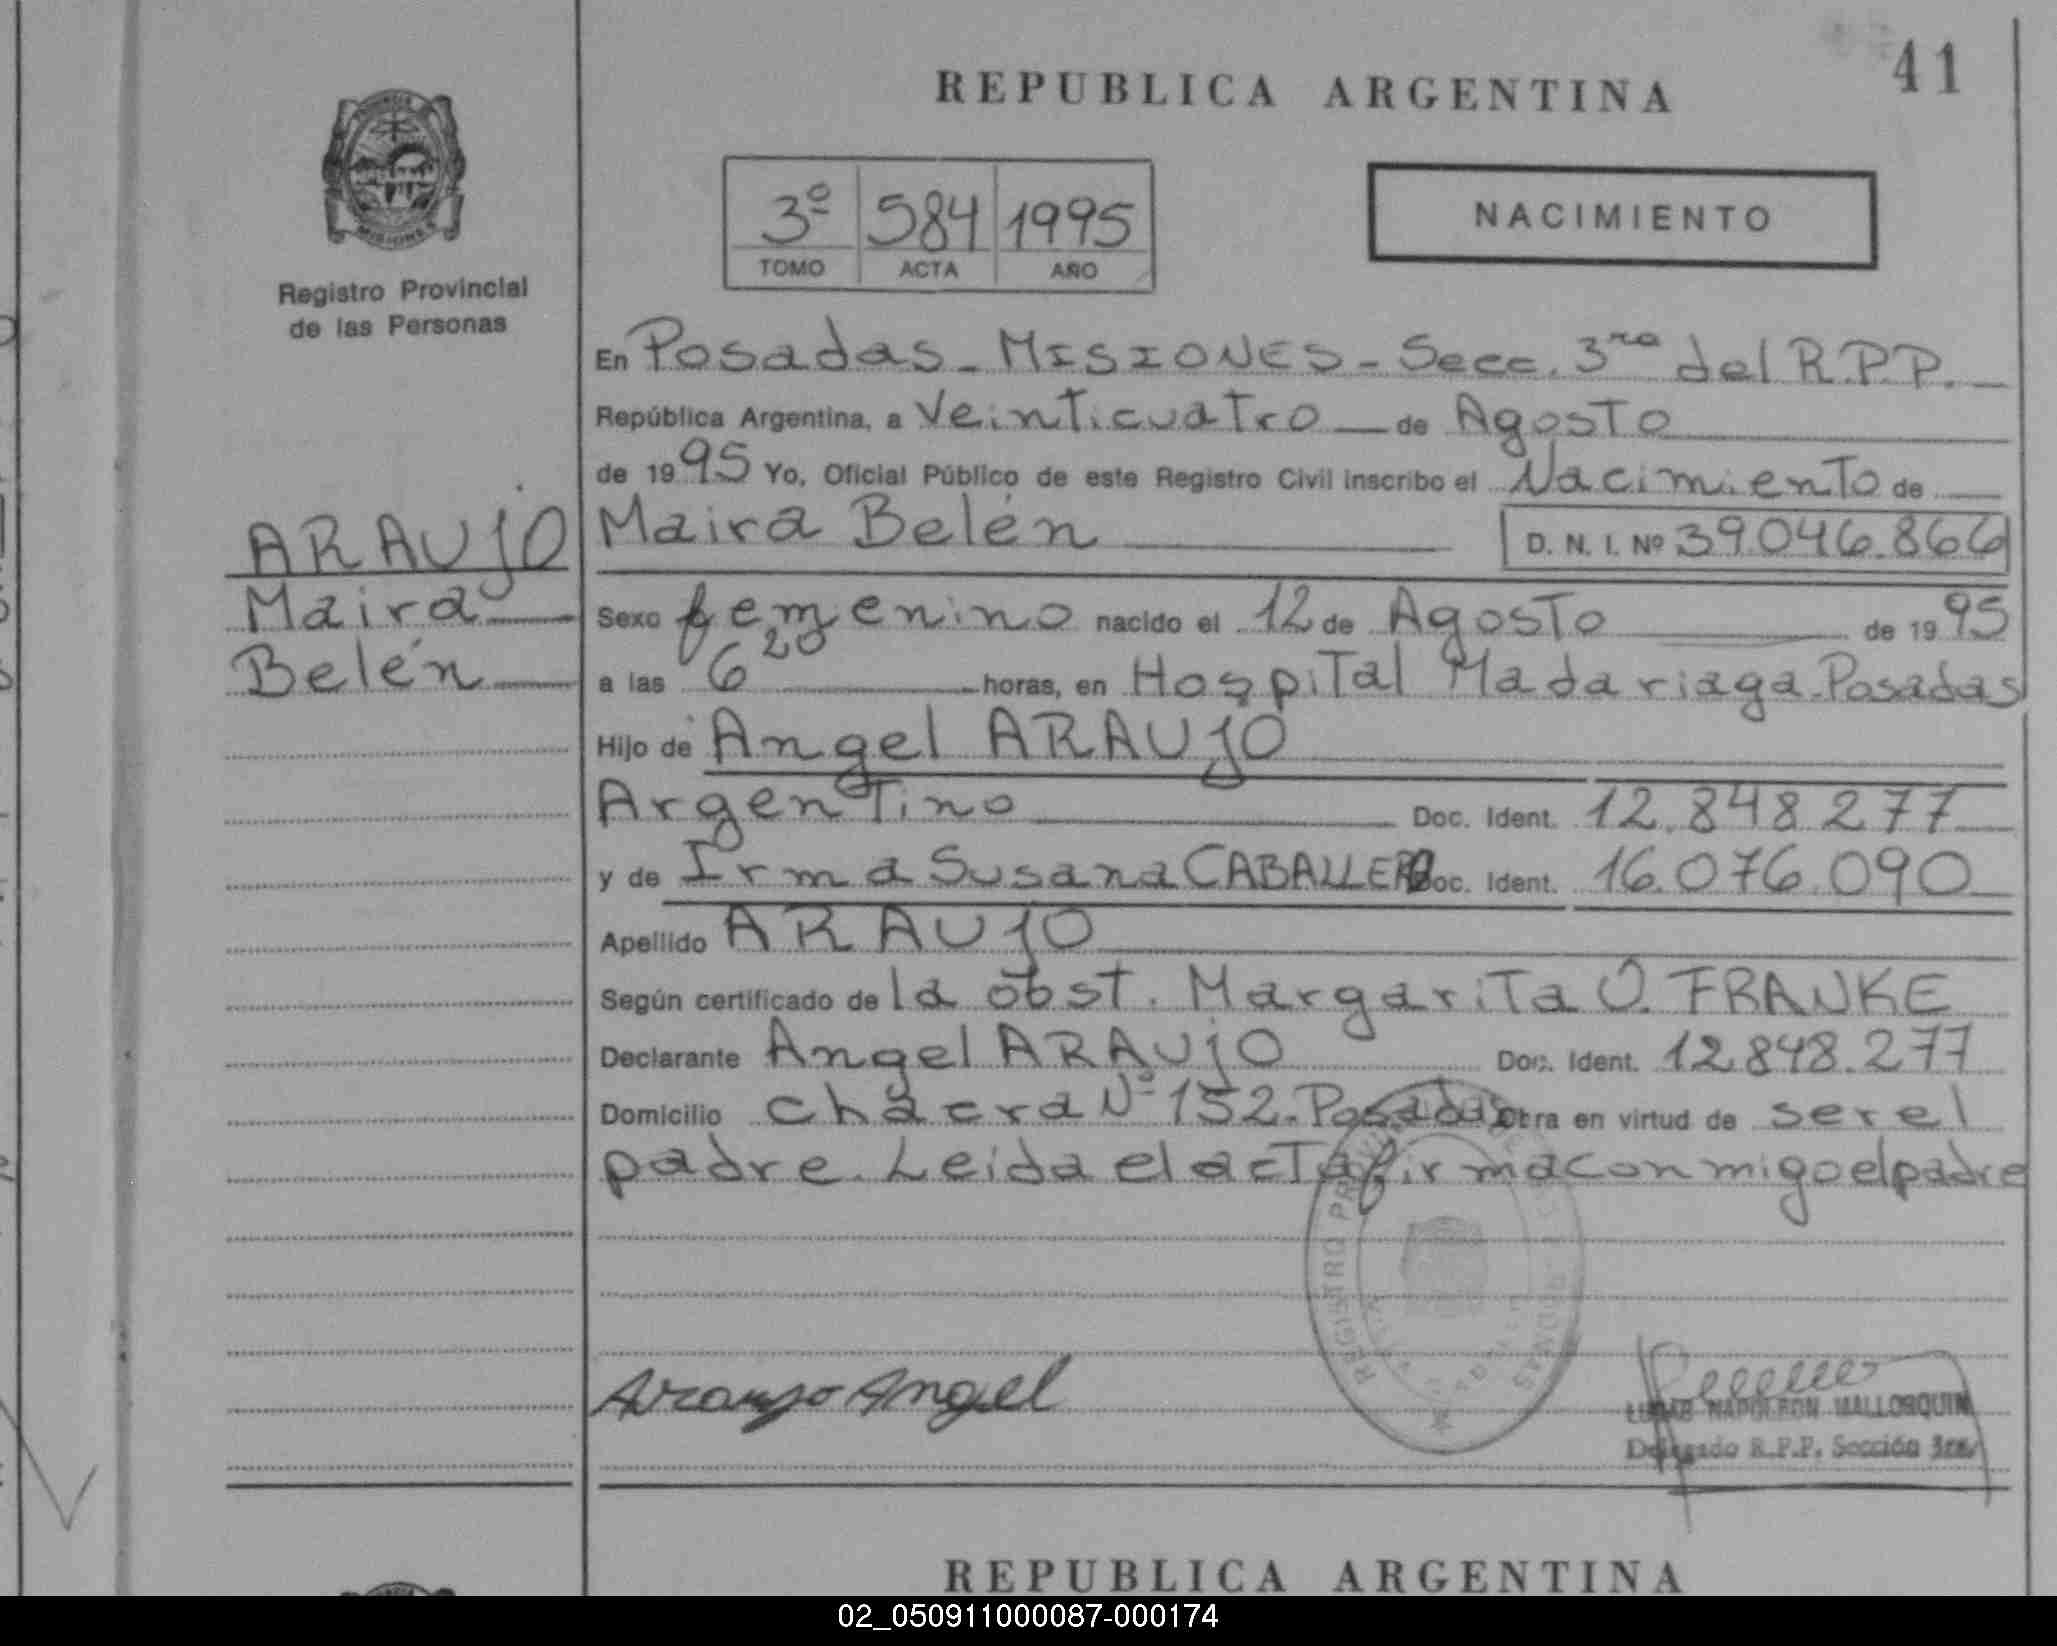 41
REPUBLICA ARGENTINA
3º 584 1995
TOMO ACTA AÑO
NACIMIENTO
MISIONES
Registro Provincial
de las Personas
En Posadas - MISIONES - Secc. 3ra del R.P.P.
República Argentina, a Veinticuatro de Agosto
de 1995 Yo, Oficial Público de este Registro Civil inscribo el Nacimiento de
ARAUJO
Maira
Belén
Maira Belén D. N. I. Nº 39.046.866
Sexo femenino nacido el 12 de Agosto de 1995
a las 6 20 horas, en Hospital Madariaga. Posadas
Hijo de Angel ARAUJO
Argentino Doc. Ident. 12.848.277
y de Irma Susana CABALLERO Doc. Ident. 16.076.090
Apellido ARAUJO
Según certificado de la obst. Margarita O. FRANKE
Declarante Angel ARAUJO Doc. Ident. 12.848.277
Domicilio chacra Nº 152. Posadas Obra en virtud de ser el
padre. Leida el acta firma conmigo el padre
REGISTRO
Araujo Angel
LUCAS NAPOLEON MALLORQUIN
Delegado R.P.P. Sección 3ra.
REPUBLICA ARGENTINA
02_050911000087-000174